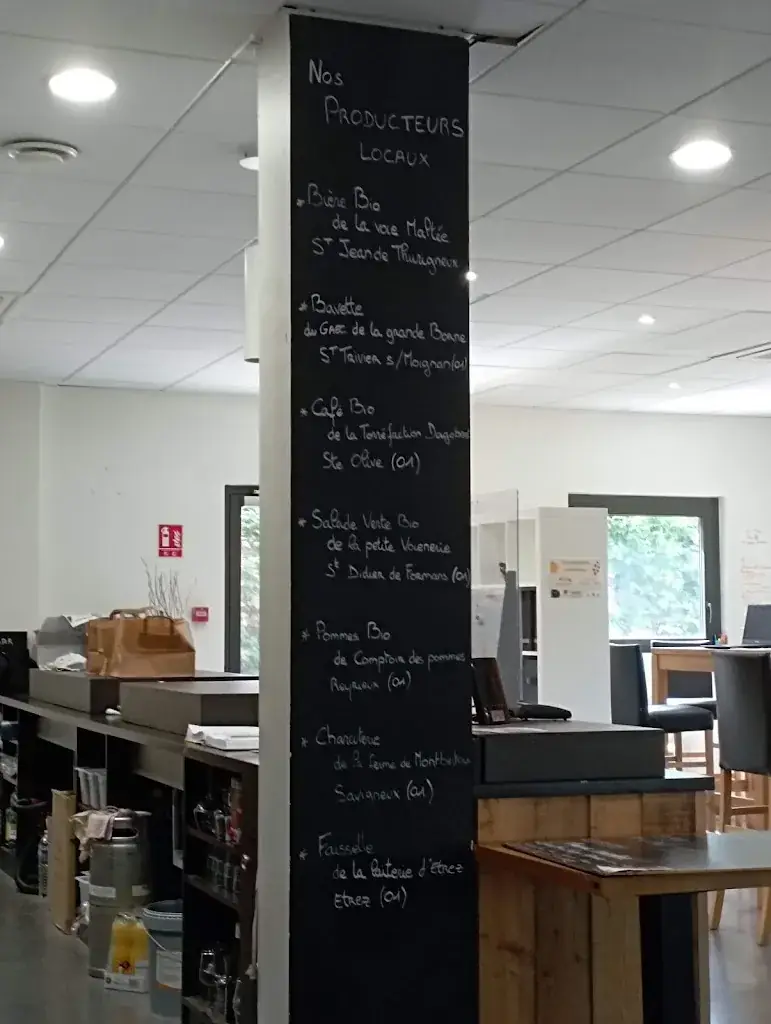 Nos
PRODUCTEURS
LOCAUX
* Bière Bio
de la voie Maltée
St Jean de Thurigneux
* Bavette
du GAEC de la grande Borne
St Trivier s/Moignan (01)
* Café Bio
de la Torréfaction
Ste Olive (01)
* Salade Verte Bio
de la petite
St Didier de Formans (01)
* Pommes Bio
de Comptoir des pommes
Reyrieux (01)
* Charcuterie
de la ferme de
Savigneux (01)
* Faisselle
de la laiterie d'Etrez
Etrez (01)